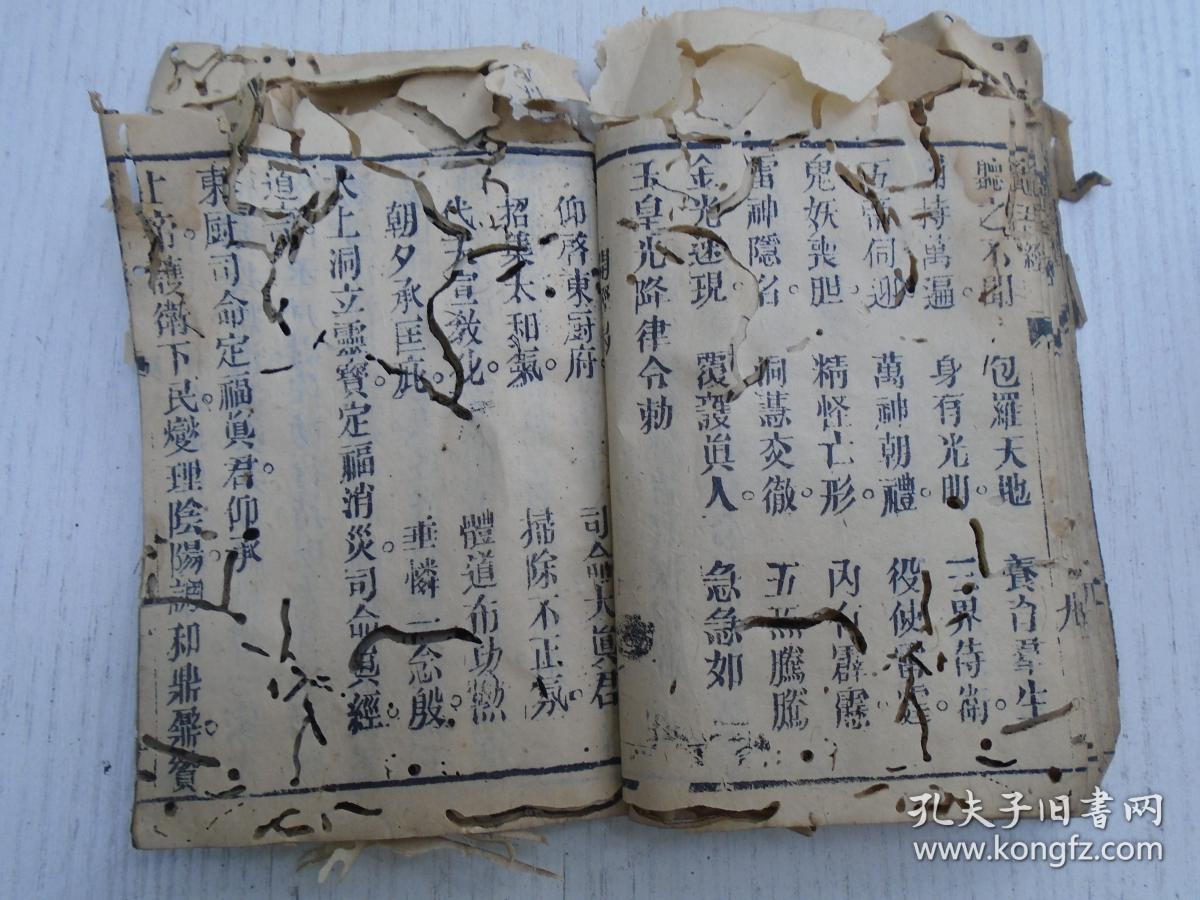 聽之不聞 包羅天地 養育羣生
誦持萬遍 身有光明 三界侍衛
五帝伺迎 萬神朝禮 役使雷霆
鬼妖喪胆 精怪亡形 內有霹靂
雷神隱名 洞慧交徹 五炁騰騰
金光速現 覆護眞人 急急如
玉皇光降律令勅
仰啓東厨府 司命大眞君
招集太和氣 掃除不正氛
代天宣教化 體道布功勲
朝夕承匡庇 垂憐一念殷
太上洞立靈寶定福消災司命眞經
道言
東厨司命定福眞君仰承
上帝護衛下民燮理陰陽調和鼎鼐
九
孔夫子旧書网
www.kongfz.com